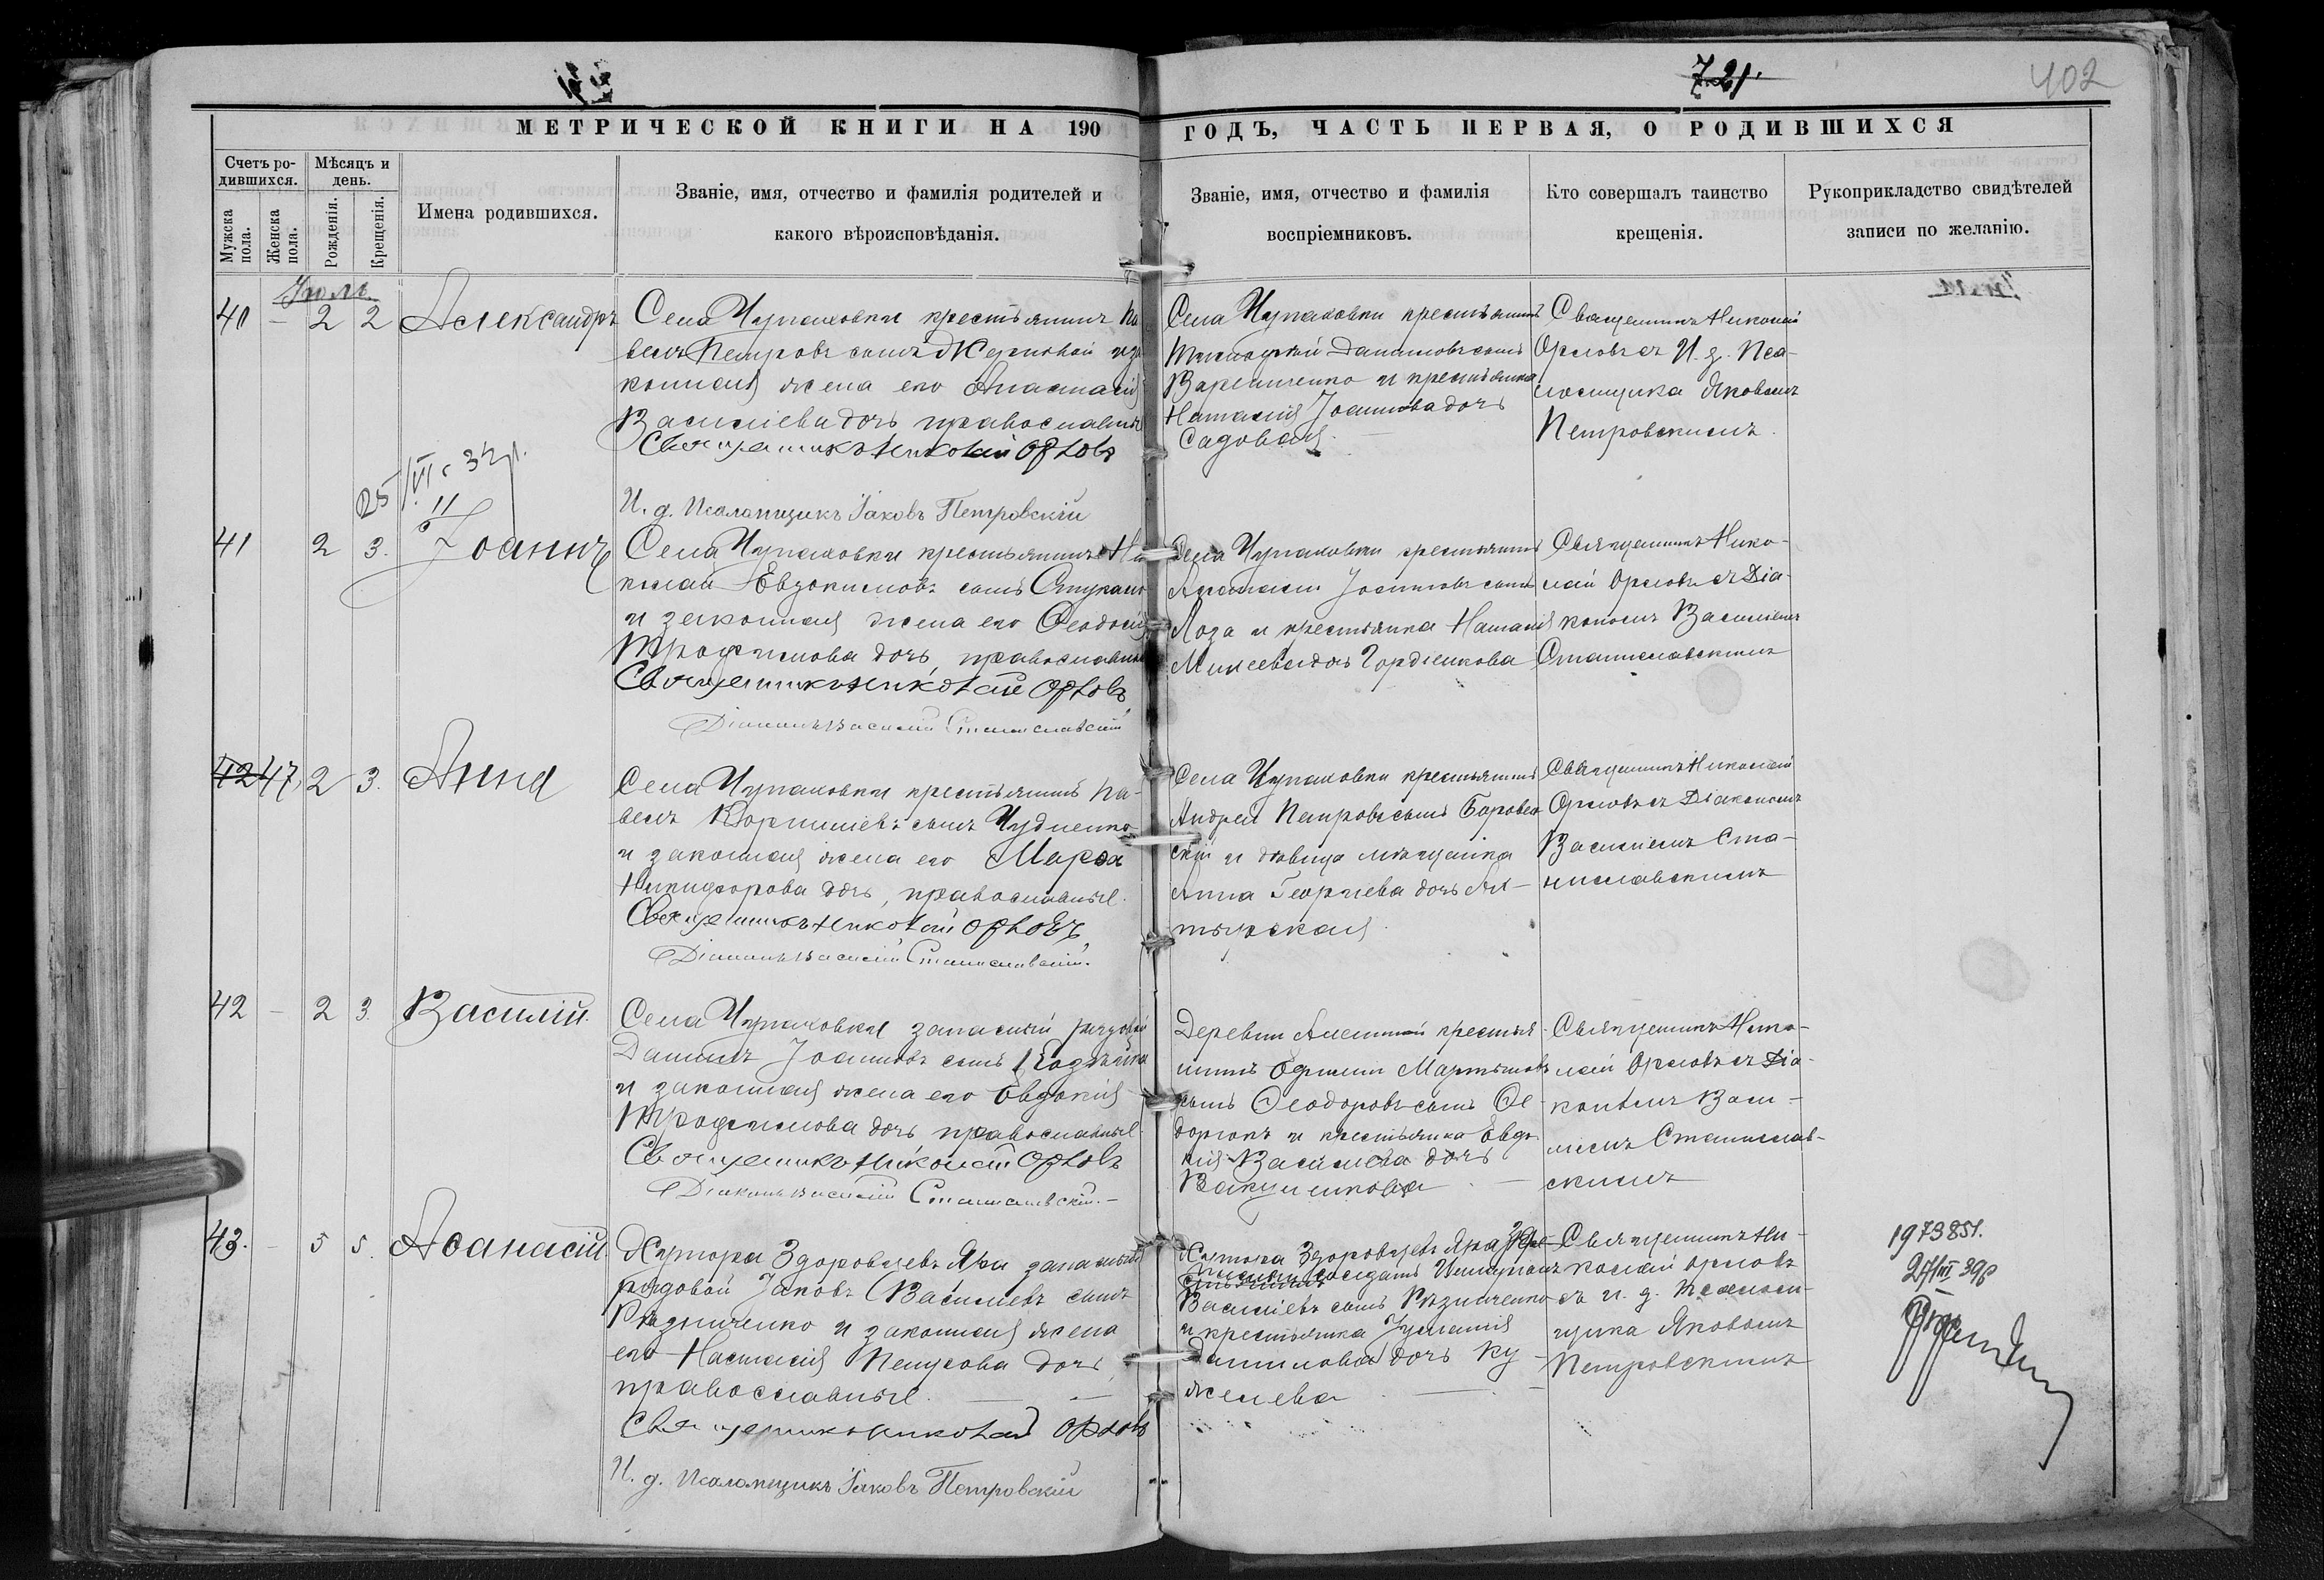 721.
402
МЕТРИЧЕСКОЙ КНИГИ НА 190 ГОДЪ, ЧАСТЬ ПЕРВАЯ, О РОДИВШИХСЯ
Счетъ ро-
дившихся.
Мужска
пола.
Женска
пола.
Мѣсяцъ и
день.
Рожденія.
Крещенія.
Имена родившихся.
Званіе, имя, отчество и фамилія родителей и
какого вѣроисповѣданія.
Званіе, имя, отчество и фамилія
воспріемниковъ.
Кто совершалъ таинство
крещенія.
Рукоприкладство свидѣтелей
записи по желанію.
40 - 2 2 Александръ
Села Чупаховки крестьянинъ Па
велъ Петровъ сынъ и за
конная жена его Анастасія
Василіева дочь православные
Священникъ Николай Орловъ
И. д. Псаломщикъ Іаковъ Петровскій
Села Чупаховки крестьянинъ
Даниловъ сынъ
и крестьянка
Наталія Іоаннова дочь
Садовая.
Священникъ Николай
Орловъ съ И. д. Пса-
ломщика Яковомъ
Петровскимъ.
25/VI 32 г.
41 2 3. Іоаннъ
Села Чупаховки крестьянинъ Ни
колай Евдокимовъ сынъ
и законная жена его Ѳеодосія
Трофимова дочь, православные
Священникъ Николай Орловъ
Діаконъ Василій Станиславскій
Села Чупаховки крестьянинъ
Іоанновъ сынъ
Лоза и крестьянка Наталія
Моисеева дочь Гордіенкова
Священникъ Нико-
лай Орловъ съ Діа-
кономъ Василіемъ
Станиславскимъ
42 47. 2 3. Анна
Села Чупаховки крестьянинъ Па-
велъ Корниліевъ сынъ Чудненко
и законная жена его Марѳа
Никифорова дочь, православные.
Священникъ Николай Орловъ
Діаконъ Василій Станиславскій.
Села Чупаховки крестьянинъ
Андрей Петровъ сынъ Боровен
скій и дѣвица мѣщанка
Анна Георгіева дочь Ах-
тырская.
Священникъ Николай
Орловъ съ Діакономъ
Василіемъ Ста-
ниславскимъ
42 - 2 3. Василій.
Села Чупаховки запасный рядовой
Даніилъ Іоанновъ сынъ
и законная жена его Евдокія
Трофимова дочь православные
Священникъ Николай Орловъ
Діаконъ Василій Станиславскій.-
Деревни крестья-
нинъ Ефимъ Мартыновъ
сынъ Ѳеодоровъ сынъ Ѳе-
и крестьянка Евдо
кія Василіева дочь
Вакуленкова
Священникъ Нико-
лай Орловъ съ Діа-
кономъ Васи-
ліемъ Станислав-
скимъ
43. - 5 5. Аѳанасій.
Хутора Здоровецевъ Яра запасный
рядовой Іаковъ Василіевъ сынъ
Рѣзниченко и законная жена
его Настасія дочь,
православные.
Священникъ Николай Орловъ
И. д. Псаломщикъ Іаковъ Петровскій
Хутора Здоровецевъ Яра
солдатъ
Василіевъ сынъ Рѣзниченко
и крестьянка Іуліанія
Даниилова дочь Ку-
желева
Священникъ Ни-
колай Орловъ
съ и. д. Псалом-
щика Яковомъ
Петровскимъ
1973851.
27/III 39 г